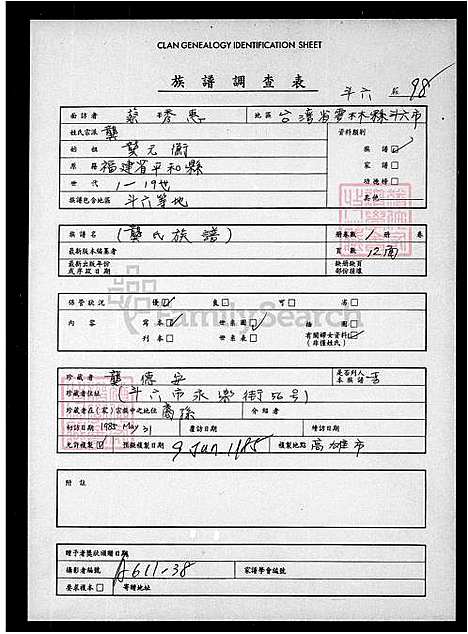 CLAN GENEALOGY IDENTIFICATION SHEET
族譜調查表
斗六 98
面訪者 蔡秀惠 地區 台灣省雲林縣斗六市
姓氏宗派 龔 資料類別
始祖 龔元衡 族譜☑
原籍 福建省平和縣 家譜☐
世代 1-19世 功德榜☐
族譜包含地區 斗六等地 其他
族譜名 (龔氏族譜) 冊卷數 1冊 卷
最新版本編纂者 頁數 12面
最新出版年份或序跋日期 缺冊缺頁部份接據
保管狀況 優☑ 良☐ 可☐ 劣☐
內容 寫本☑ 世系圖☑ 插圖☐
刊本☐ 世系表☐ 有關婦女資料☑(非僅姓氏)
珍藏者 龔德安 是否列入本族譜 否
珍藏者住址 (斗六市永樂街56號)
珍藏者在(家)宗族中之地位 裔孫 介紹者
初訪日期 1985 May 31 覆訪日期 續訪日期
允許複製☑ 預擬複製日期 9 Jun 1985 複製地點 高雄市
附註
贈予者獎狀頒贈日期
攝影者編號 A611-38 家譜學會編號
要求複本☐ 寄贈地址
FamilySearch